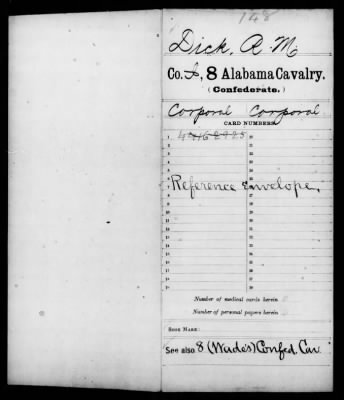 148
Dick, A. M.
Co. I, 8 Alabama Cavalry.
(Confederate.)
Corporal Corporal
CARD NUMBERS.
Reference Envelope.
Number of medical cards herein 0
Number of personal papers herein 0
BOOK MARK:
See also 8 (Wade's) Confed. Cav.